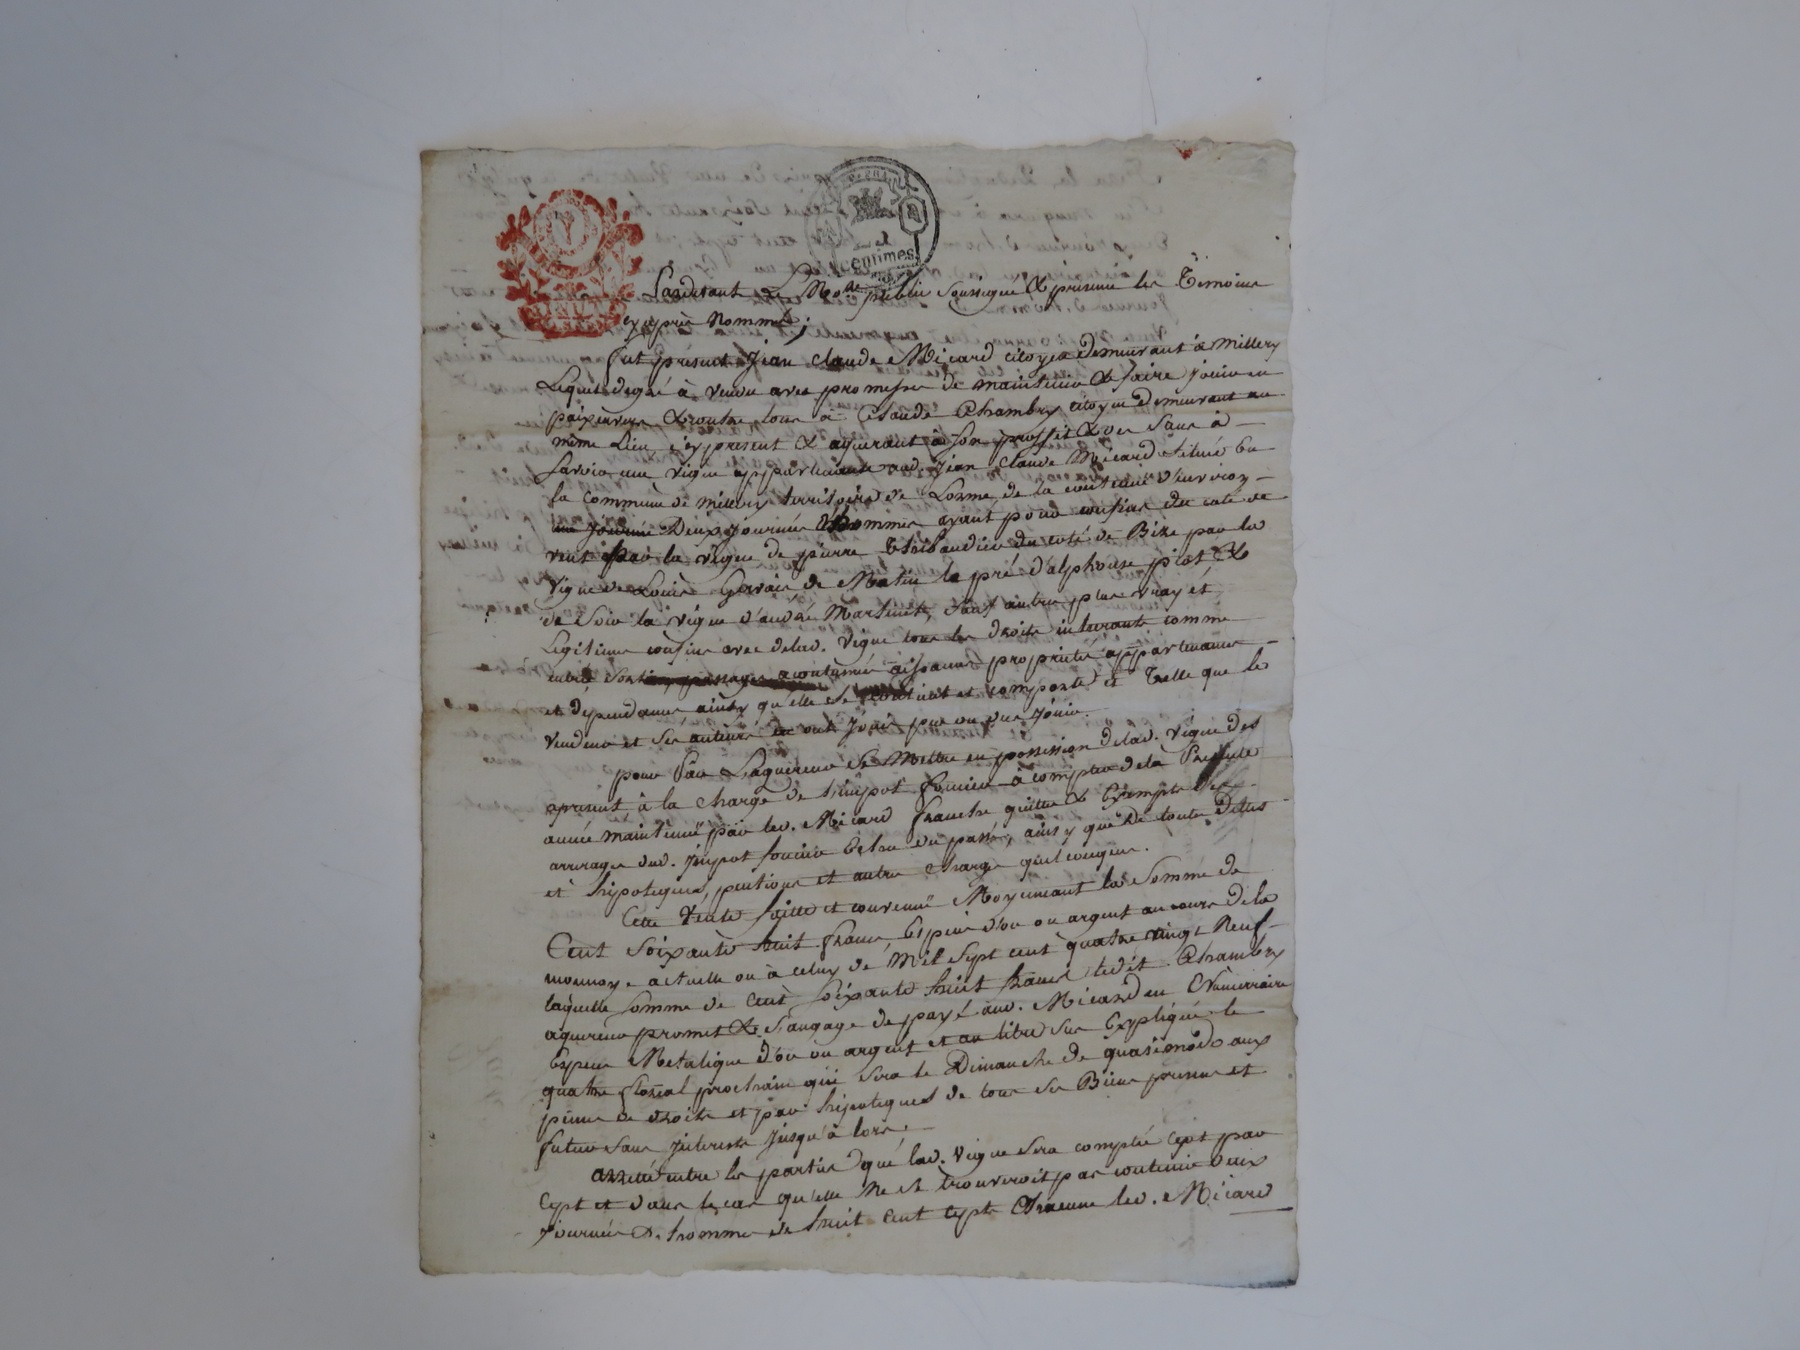 centimes
Pardevant le No.re public Soussigné & présence les Temoins
cy après Nommés;
fut présent Jean Claude Micard citoyen demeurant à Millery
Lequel degré à vendu avec promesse de maintenir & faire jouir en
paix envers & contre tous à Claude Chambry citoyen demeurant au
même Lieu, cy present & aquerant à son proffit & des Siens à
Savoir une vigne appartenante aud. Jean Claude Micard Située En
la commune de Millery territoire de Lorme, de la contenue d'environ
Deux journées d'hommes ayant pour confins du coté de
vent par la vigne de pierre Thibaudier du coté de Bize par la
vigne de Louis Gervais de Matin le pré d'alphonse piot, &
de Soir la vigne d'andré Martinet, Sauf autres plus vray et
Legitimes confins avec delad. vigne tous les droits interants comme
entrés Sorties, passages acoutumés aisances propriétés appartenances
et dépendances ainsy qu'elle se contient et comporte et Telle que le
vendeur et Ses auteurs en ont jouis pue ou due jouir.
pour par L'aquereur Se Mettre en possession delad. vigne des
apresent à la charge de L'impot foncier à compter dela Presente
année maintenüe par led. Micard franche quitte & Exempte des
arrerages dud. impot foncier Echu du passé, ainsy que de toute dettes
et hipoteques, pentions et autre charge quelconques.
Cette Vente faitte et convenüe Moyennant la Somme de
Cent Soixante huit francs Espece d'or ou argent au cours de la
monnoye actuelle ou à celuy de Mil Sept cent quatre vingt Neuf
laquelle Somme de Cent Soixante huit francs ledit Chambry
aquereur promet & S'angage de payé aud. Micard en Numerraire
Especes Metalique d'or ou argent et au titre Sus Expliqué le
quatre floréal prochain qui Sera le Dimanche de quasimodo aux
peines de droits et par hipoteques de tous Ses Biens presens et
futur Sans Interests jusqu'à lors.
arretté entre les parties que lad. vigne Sera comptée Cept par
Cept et dans le cas qu'elle ne se trouveroit pas contenir deux
journées d'hommes de huit cent cepts Chacune led. Micard